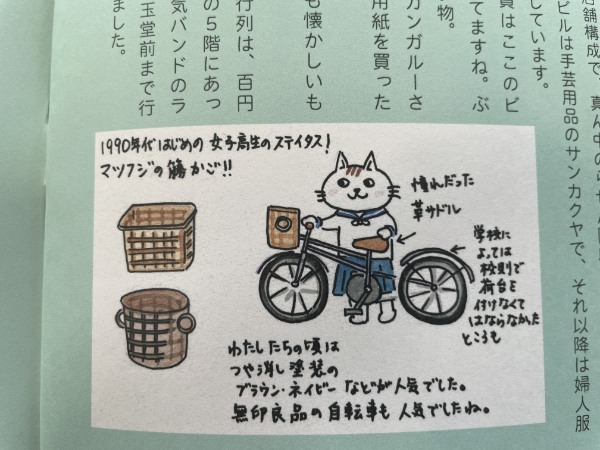 店舗構成で、真ん中のらせん階
ビルは手芸用品のサンカクヤで、それ以降は婦人服
しています。
員はここのビ
てますね。ぶ
物。
カンガルーさ
用紙を買った
も懐かしいも
行列は、百円
の5階にあっ
気バンドのラ
玉堂前まで行
ました。
1990年代はじめの女子高生のステイタス!
マツフジの籐かご!!
憧れだった
革サドル
学校に
よっては
校則で
荷台を
付けなくて
はならなかった
ところも
わたしたちの頃は
つや消し塗装の
ブラウン・ネイビーなどが人気でした。
無印良品の自転車も人気でしたね。